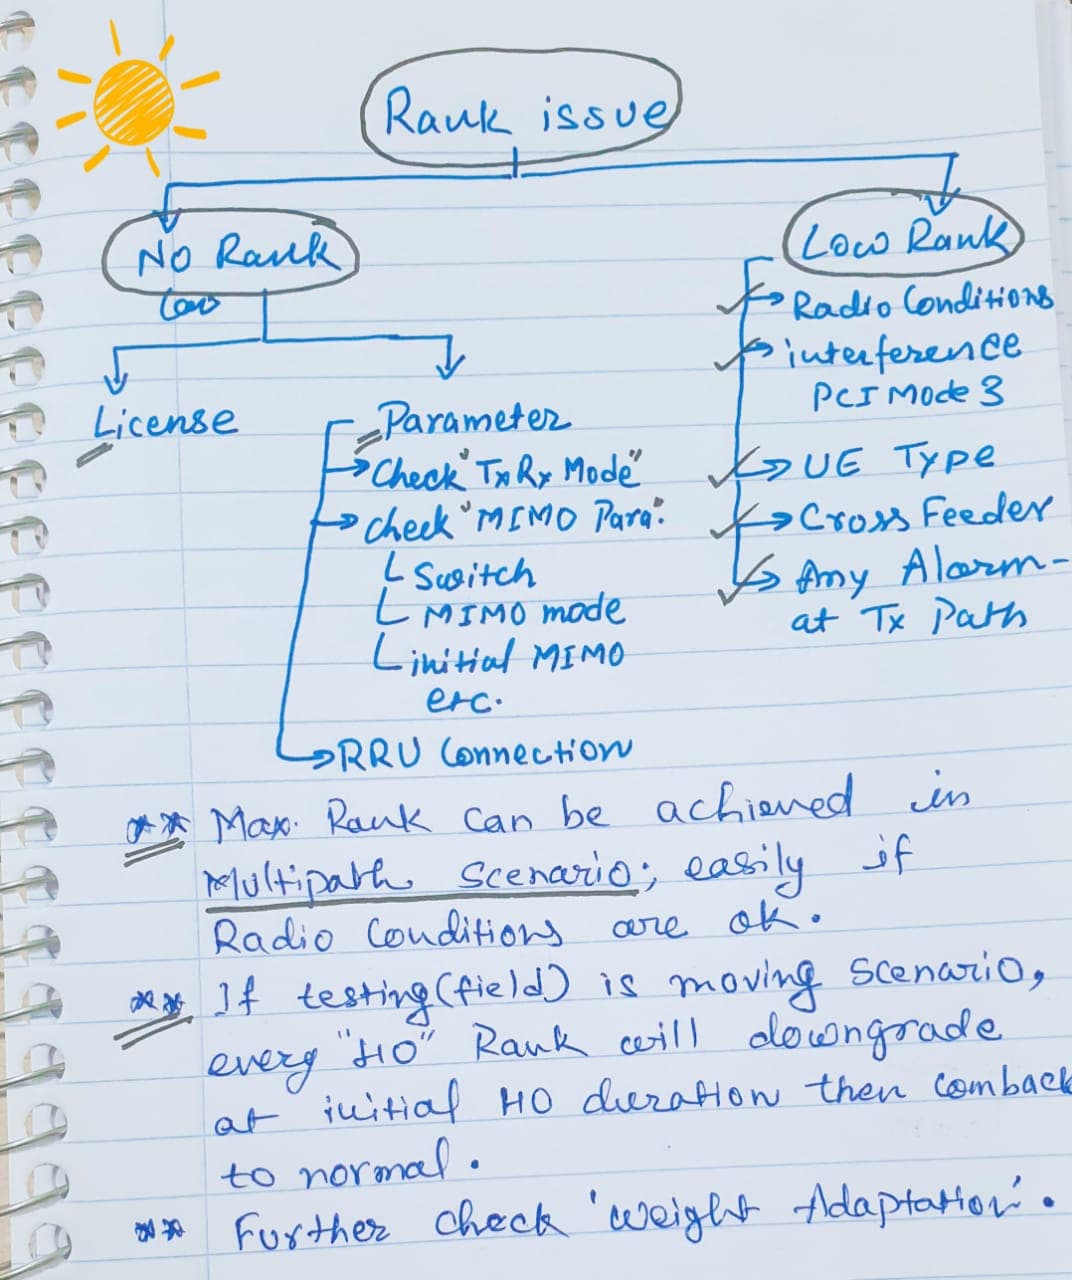 Rank issue
No Rank
Low
Low Rank
License
Parameter
Check "TxRx Mode"
check "MIMO Para."
Switch
MIMO mode
initial MIMO
etc.
RRU Connection
Radio Conditions
interference
PCI Mode 3
UE Type
Cross Feeder
Any Alarm-
at Tx Path
** Max. Rank can be achieved in
Multipath Scenario; easily if
Radio Conditions are ok.
** If testing (field) is moving scenario,
every "HO" Rank will downgrade
at initial HO duration then comback
to normal.
** Further check 'weight Adaptation'.